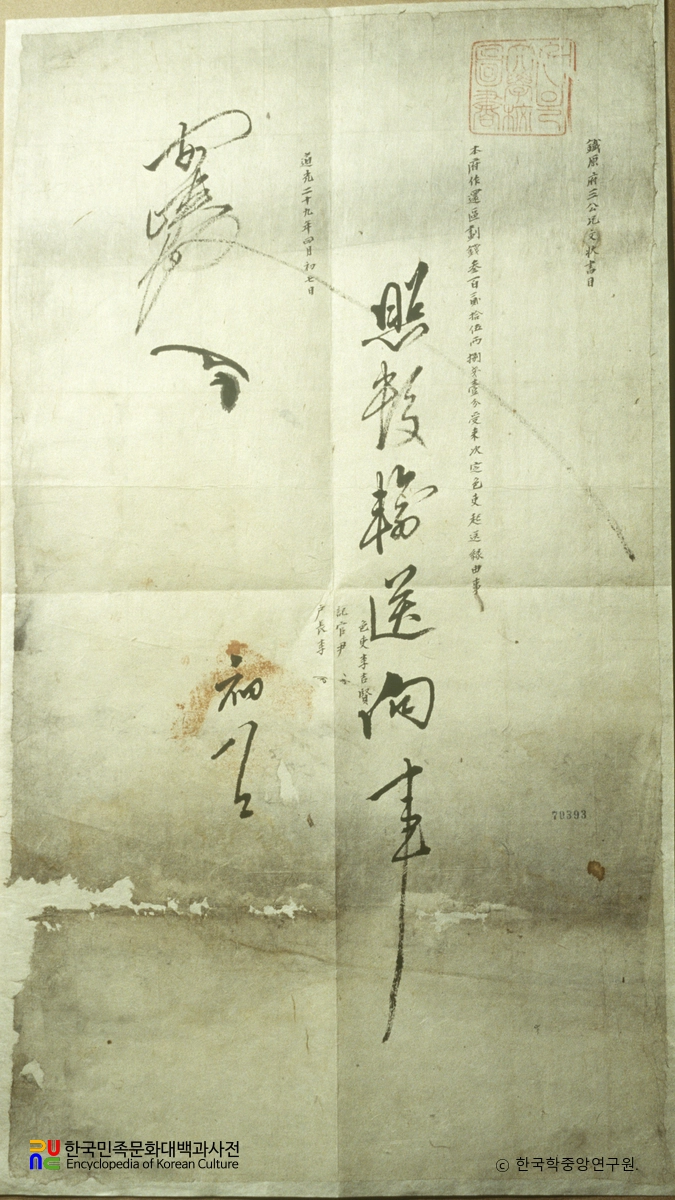 鐵原府三公兄文狀書目
本府作還區劃錢叁百貳拾伍兩捌戔壹分受來次定色吏起送緣由事
照數輸送向事
色吏李吉賢
記官尹
戶長李
道光二十九年四月初七日
初
70393
한국민족문화대백과사전
Encyclopedia of Korean Culture
© 한국학중앙연구원